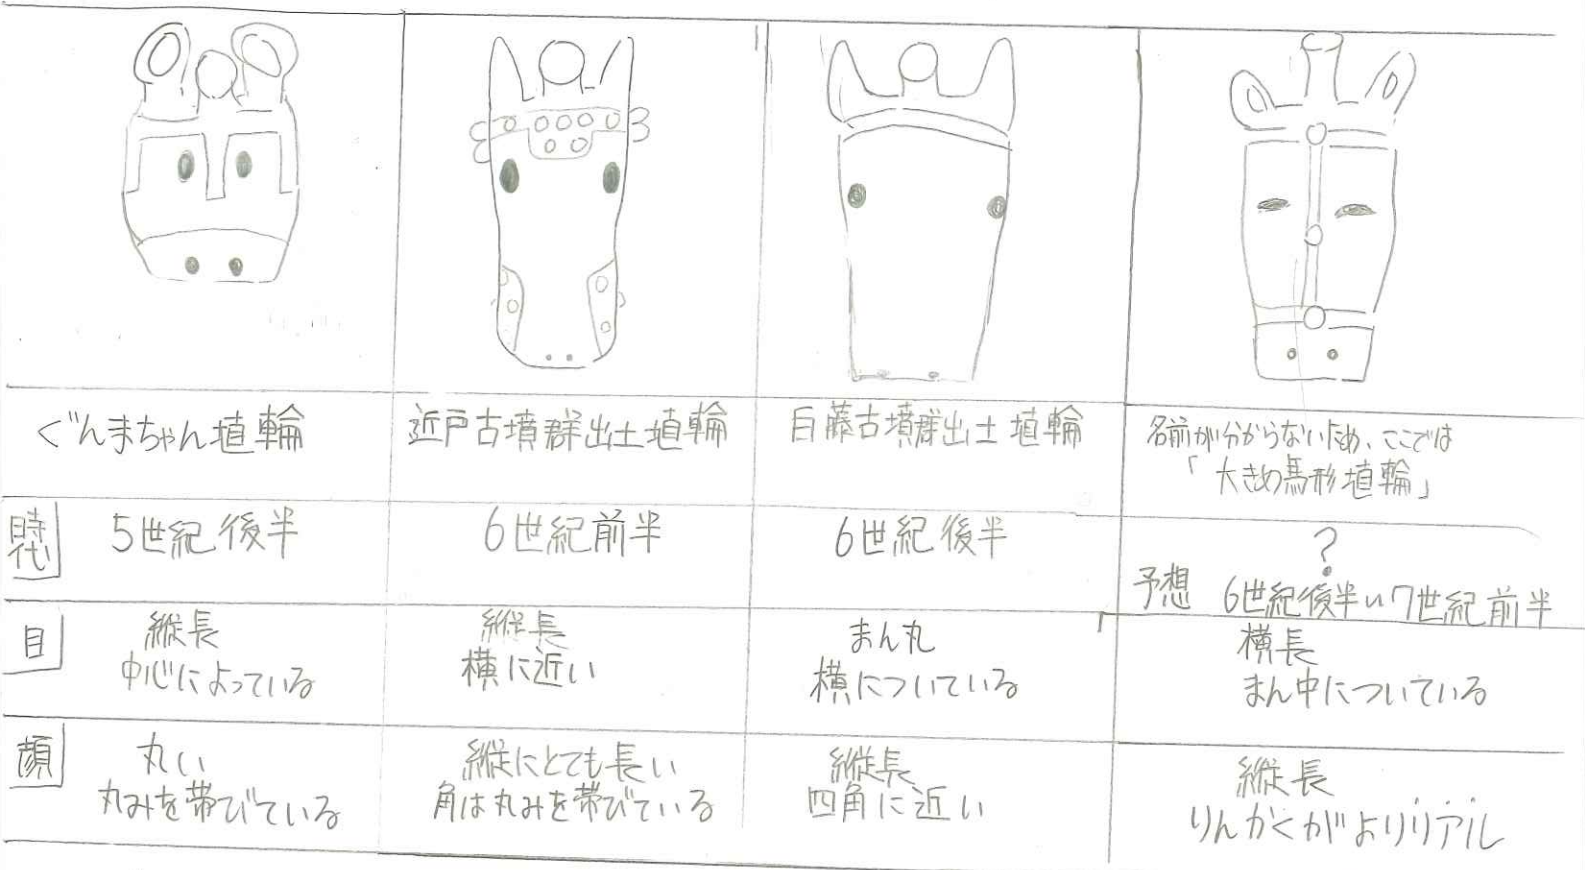 ぐんまちゃん埴輪
近戸古墳群出土埴輪
白藤古墳群出土埴輪
名前が分からないため、ここでは
「大きめ馬形埴輪」
時代
5世紀後半
6世紀前半
6世紀後半
?
予想 6世紀後半〜7世紀前半
目
縦長
中心によっている
縦長
横に近い
まん丸
横についている
横長
まん中についている
顔
丸い
丸みを帯びている
縦にとても長い
角は丸みを帯びている
縦長
四角に近い
縦長
りんかくがよりリアル